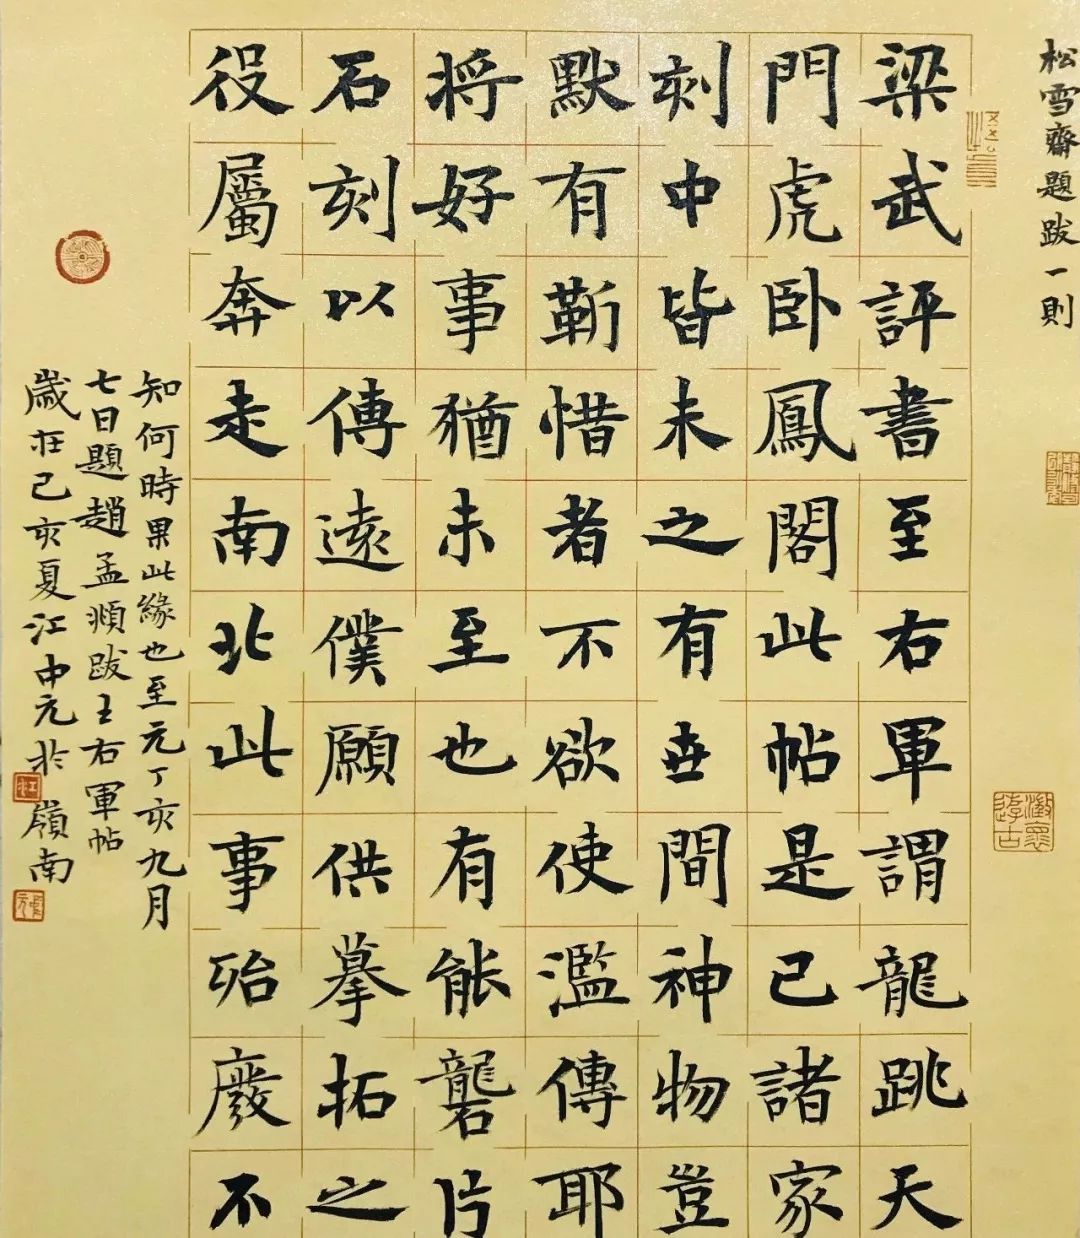 松雪齋題跋一則
梁武評書至右軍謂龍跳天
門虎卧鳳閣此帖是已諸家
刻中皆未之有世間神物豈
默有靳惜者不欲使濫傳耶
將好事猶未至也有能礱片
石刻以傳遠僕願供摹拓之
役屬奔走南北此事殆廢不
知何時果此緣也至元丁亥九月
七日題趙孟頫跋王右軍帖
歲在己亥夏江中元於嶺南
澂懷遊古
江